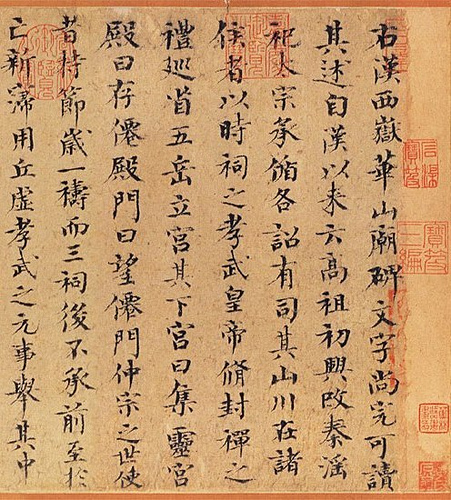 右漢西嶽華山廟碑文字尚完可讀
其述自漢以来云高祖初興改秦淫
祀太宗承循各詔有司其山川在諸
侯者以時祠之孝武皇帝脩封禪之
禮巡省五岳立宮其下宮曰集靈宮
殿曰存僊殿門曰望僊門仲宗之世使
者持節歲一禱而三祠後不承前至於
亡新寖用丘虛孝武之元事舉其中
石渠寶笈
寶笈三編